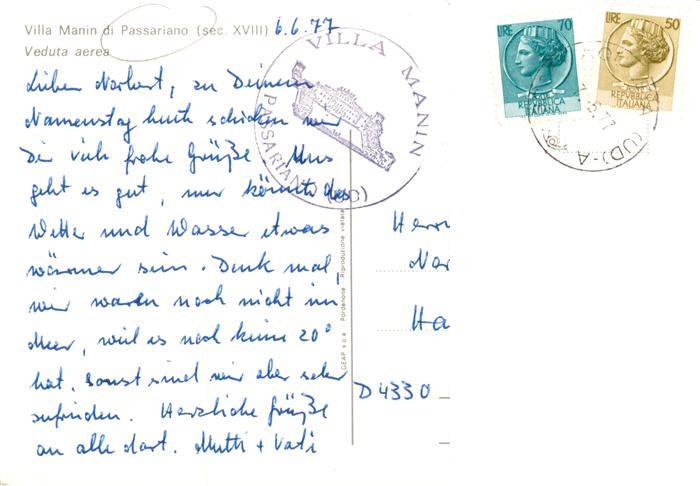 Villa Manin di Passariano (sec. XVIII) 6.6.77
Veduta aerea
Lieber Norbert, zu Deinem
Namenstag heute schicken wir
Dir viele frohe Grüße. Uns
geht es gut, nur könnte das
Wetter und Wasser etwas
wärmer sein. Denk mal,
wir waren noch nicht im
Meer, weil es noch keine 20°
hat. Sonst sind wir aber sehr
zufrieden. Herzliche Grüße
an alle dort. Mutti + Vati
VILLA MANIN
PASSARIANO
GEAP s.p.a. - Pordenone - Riproduzione vietata
LIRE 70
REPUBBLICA
ITALIANA
LIRE 50
REPUBBLICA
ITALIANA
(UD)-A
Herrn
Nor
Ha
D 4330